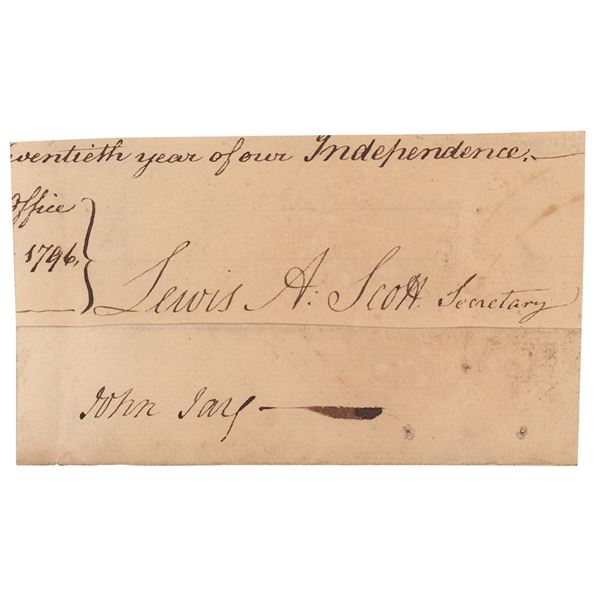 wentieth year of our Independence.
Office
1796,
Lewis A: Scott. Secretary
John Jay